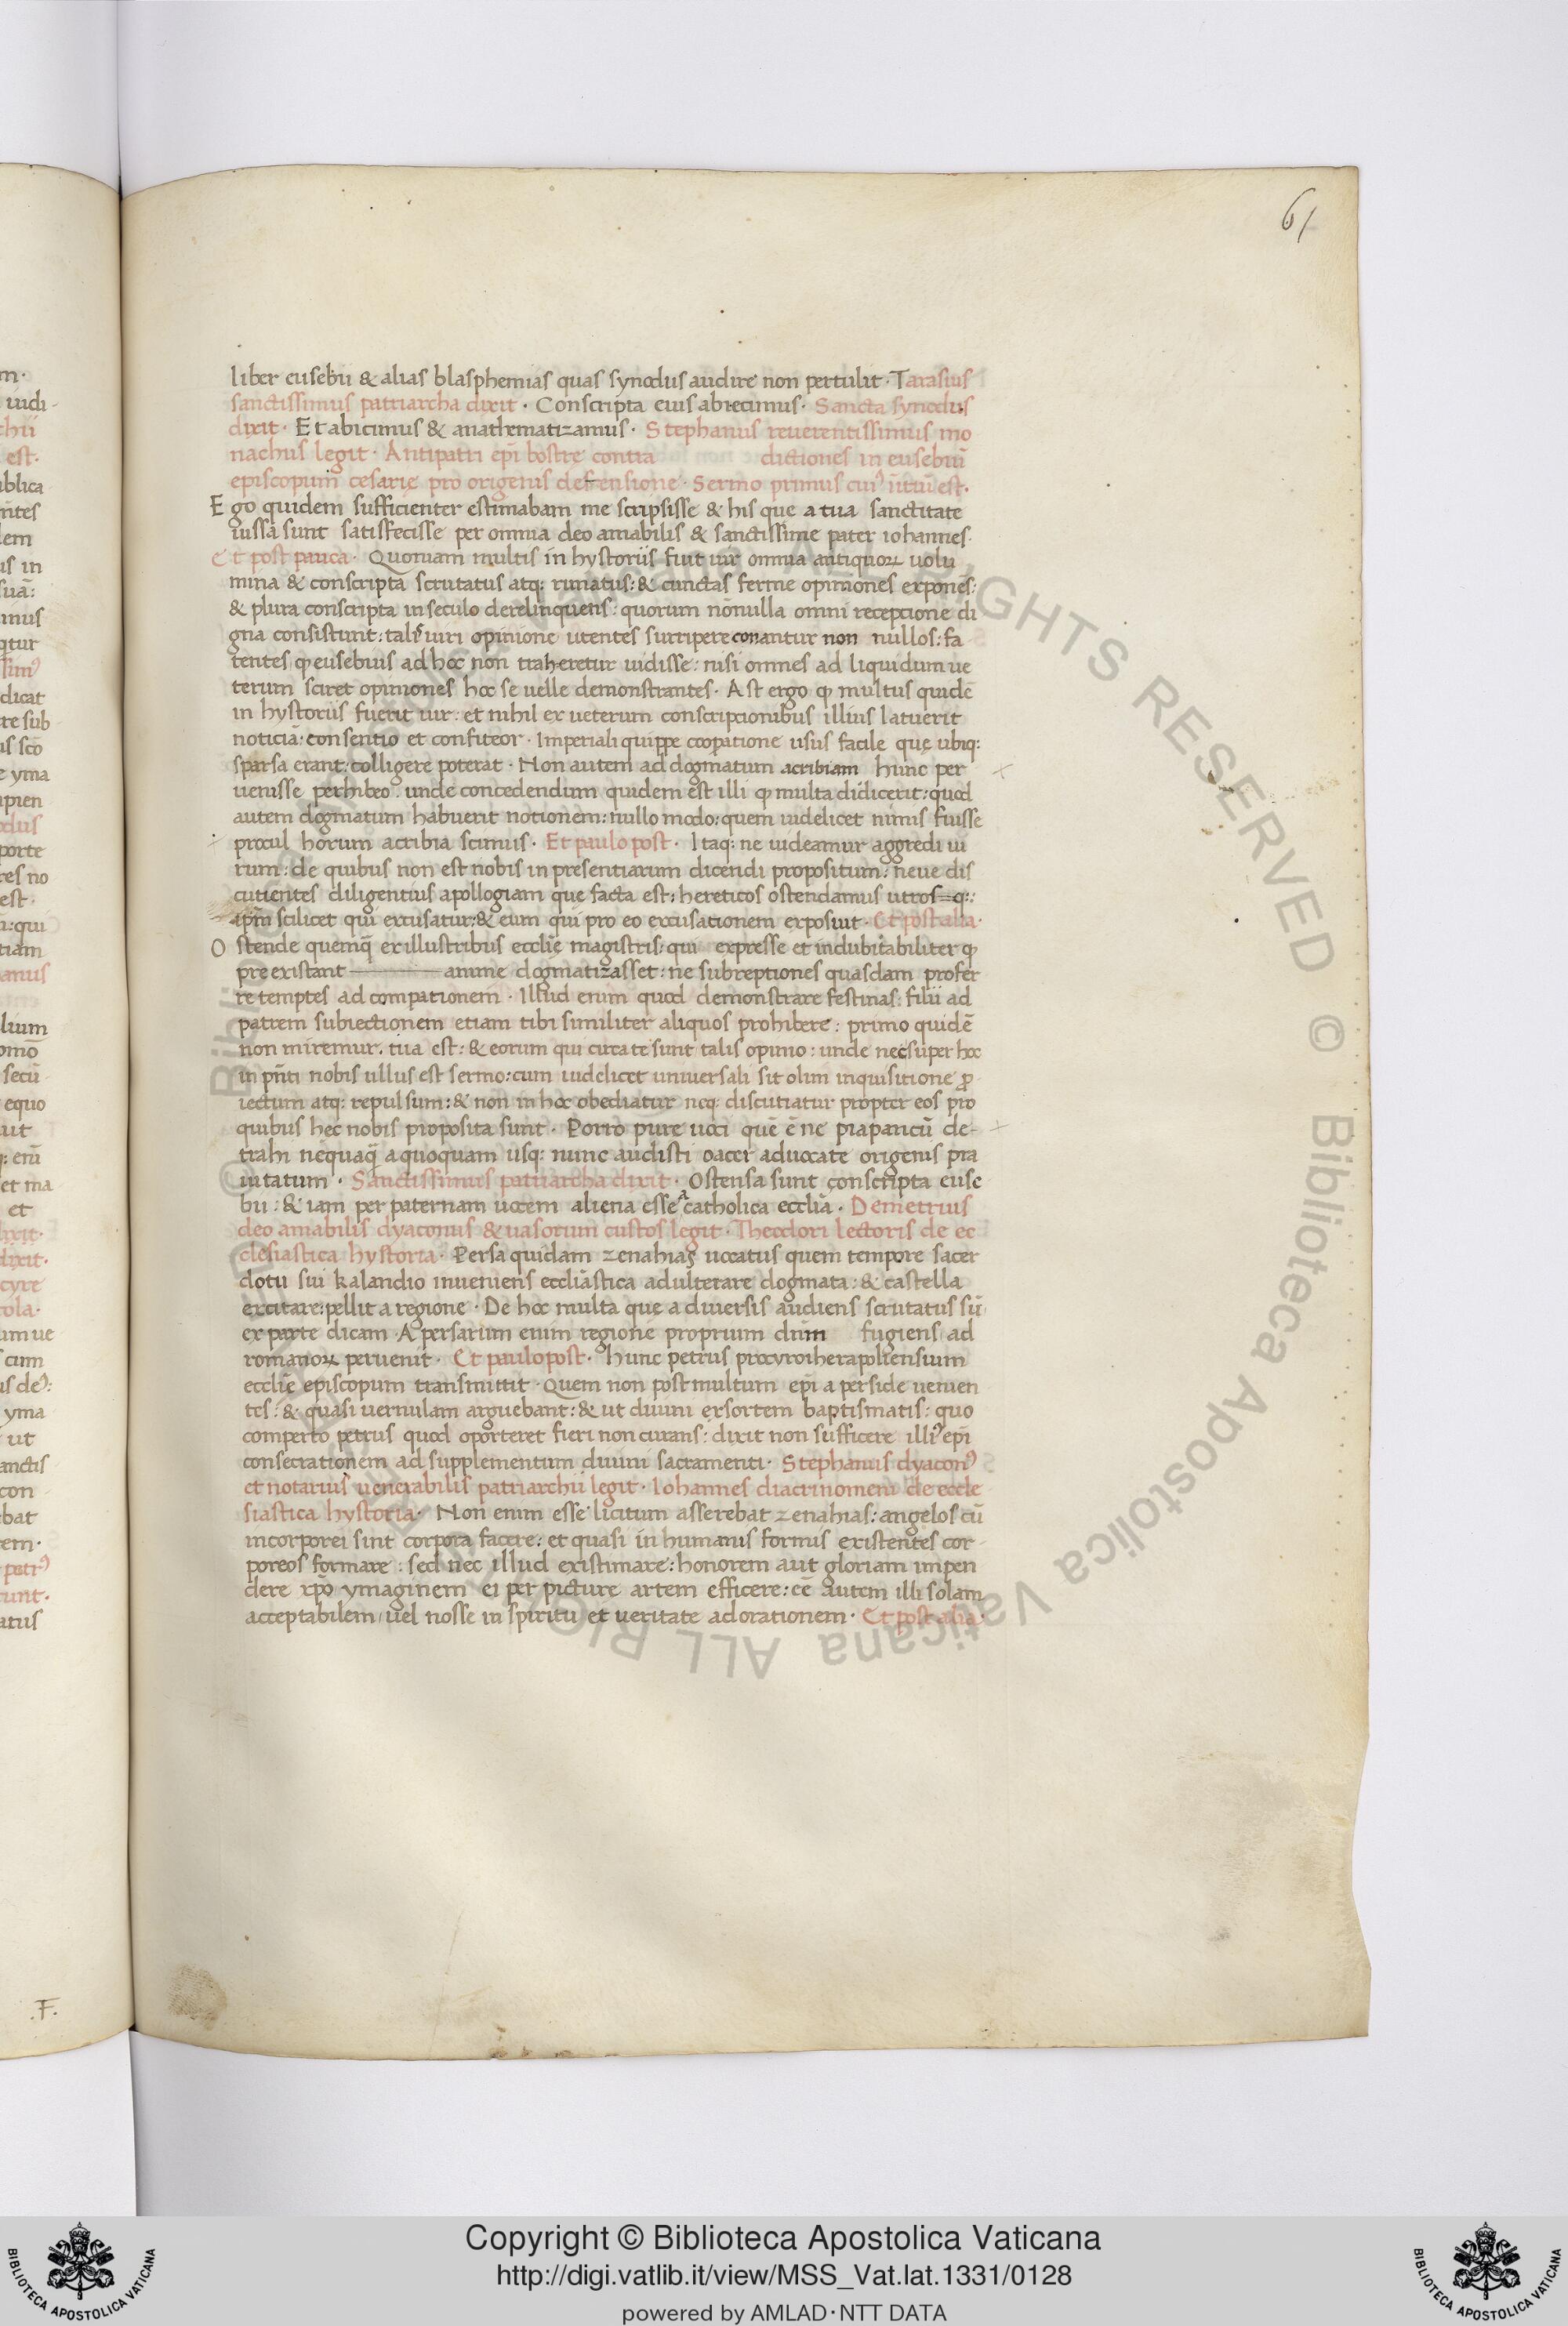 61
liber eusebii & alias blasphemias quas synodus audire non pertulit · Tarasius
sanctissimus patriarcha dixit · Conscripta eius abiecimus · Sancta synodus
dixit · Et abicimus & anathematizamus · Stephanus reuerentissimus mo
nachus legit · Antipatri ep̄i bostre contra dictiones in eusebiū
episcopum cesarię pro origenis defensione · Sermo primus cui᾽ initiū est.
Ego quidem sufficienter estimabam me scripsisse & his que a tua sanctitate
iussa sunt satisfecisse per omnia deo amabilis & sanctissime pater iohannes.
Et post pauca · Quoniam multis in hystoriis fuit uir omnia antiquoꝝ uolu
mina & conscripta scrutatus atq: rimatus: & cunctas ferme opiniones exponēs:
& plura conscripta in seculo derelinquens: quorum nōnulla omni receptione di
gna consistunt: tali᾽ uiri opinione utentes surripere conantur non nullos: fa
tentes ꝙ eusebius ad hoc non traheretur uidisse: nisi omnes ad liquidum ue
terum sciret opiniones hoc se uelle demonstrantes · Ast ergo ꝙ multus quidē
in hystoriis fuerit uir: et nihil ex ueterum conscriptionibus illius latuerit
noticiā: consentio et confiteor · Imperiali quippe coopatione usus facile quę ubiq:
sparsa erant: colligere poterat · Non autem ad dogmatum acribiam hunc per
uenisse perhibeo: unde concedendum quidem est illi ꝙ multa didicerit: quod
autem dogmatum habuerit notionem: nullo modo: quem uidelicet nimis fuisse
procul horum acribia scimus · Et paulo post · Itaq: ne uideamur aggredi ui
rum: de quibus non est nobis in presentiarum dicendi propositum: neue dis
cutientes diligentius apollogiam que facta est: hereticos ostendamus utrosq::
ip̄m scilicet qui excusatur: & eum qui pro eo excusationem exposuit · Et post alia·
Ostende quemq̄ ex illustribus ecclīę magistris: qui expresse et indubitabiliter ꝙ
pre existant anime dogmatizasset: ne subreptiones quasdam profer
re temptes ad compationem · Illud enim quod demonstrare festinas: filii ad
patrem subiectionem etiam tibi similiter aliquos prohibere: primo quidē
non miremur. tua est: & eorum qui circa te sunt talis opinio: unde nec super hoc
in pn̄ti nobis ullus est sermo: cum uidelicet uniuersali sit olim inquisitione ꝓ
iectum atq: repulsum: & non in hoc obediatur neq: discutiatur propter eos pro
quibus hec nobis proposita sunt · Porro pure uoci quē ē ne piapancū de-
trahi nequaq̄ a quoquam usq: nunc audisti o acer aduocate origenis pra
uitatum · Sanctissimus patriarcha dixit · Ostensa sunt conscripta euse
bii: & iam per paternam uocem aliena esse a catholica ecclīa · Demetrius
deo amabilis dyaconus & uasorum custos legit · Theodori lectoris de ec
clesiastica hystoria · Persa quidam zenahias uocatus quem tempore sacer
dotii sui kalandio inueniens ecclīastica adulterare dogmata: & castella
excitare: pellit a regione · De hoc multa que a diuersis audiens scrutatus sū
ex parte dicam · A persarum enim regione proprium dn̄m fugiens ad
romanoꝝ peruenit · Et paulo post · hunc petrus procyroiherapoliensium
ecclīę episcopum transmittit · Quem non post multum ep̄i a perside uenien
tes: & quasi uernulam arguebant: & ut diuini exsortem baptismatis: quo
comperto petrus quod oporteret fieri non curans: dixit non sufficere illi᾽ ep̄i
consecrationem ad supplementum diuini sacramenti · Stephanus dyacon᾽
et notarius uenerabilis patriarchii legit · Iohannes diacrinomeni de eccle
siastica hystoria · Non enim esse licitum asserebat zenahias: angelos cū
incorporei sint corpora facere: et quasi in humanis formis existentes cor
poreos formare: sed nec illud existimare: honorem aut gloriam impen
dere xp̄o ymaginem ei per picture artem efficere: cē autem illi solam
acceptabilem, uel nosse in spiritu et ueritate adorationem · Et post alia·
.F.
Copyright © Biblioteca Apostolica Vaticana
http://digi.vatlib.it/view/MSS_Vat.lat.1331/0128
powered by AMLAD·NTT DATA
BIBLIOTECA APOSTOLICA VATICANA
BIBLIOTECA APOSTOLICA VATICANA